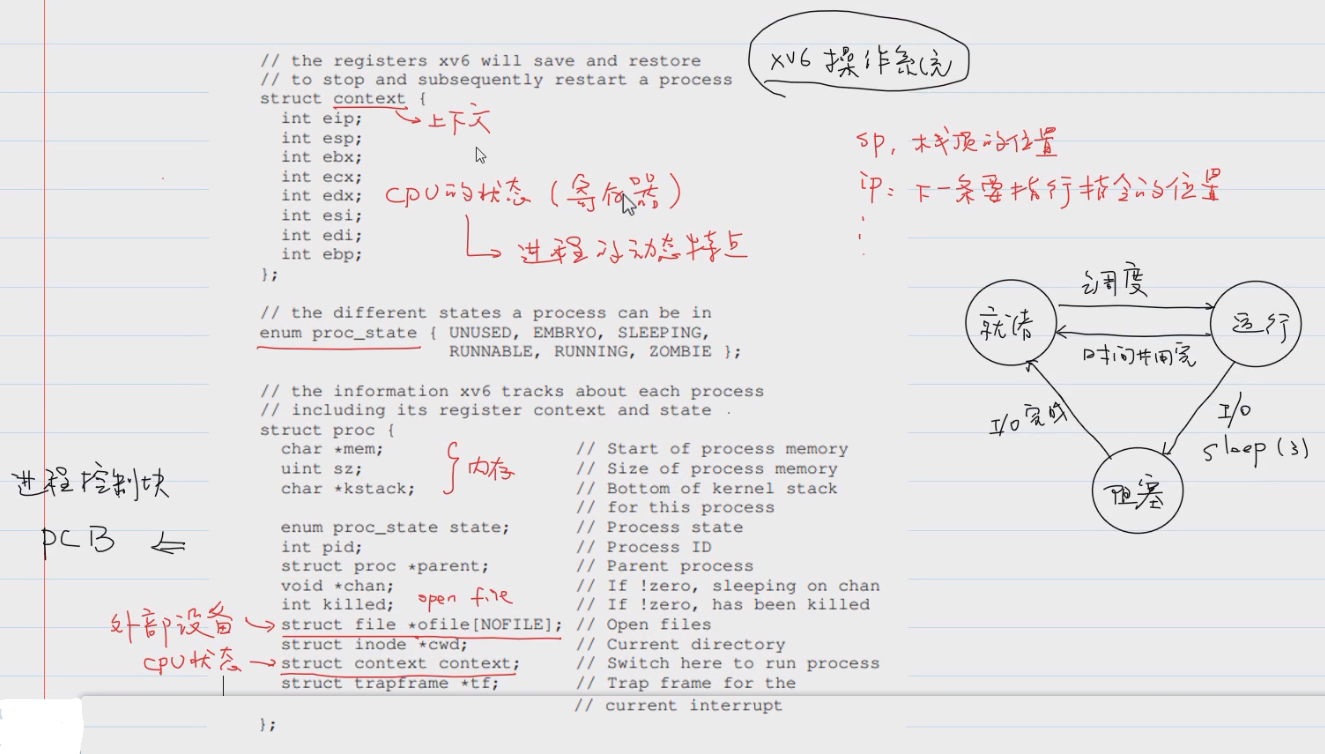 xv6 操作系统
// the registers xv6 will save and restore
// to stop and subsequently restart a process
struct context {
int eip;
上下文
int esp;
int ebx;
int ecx;
int edx;
int esi;
int edi;
int ebp;
};
CPU的状态（寄存器）
进程的动态特点
sp, 栈顶的位置
ip: 下一条要指行指令的位置
// the different states a process can be in
enum proc_state { UNUSED, EMBRYO, SLEEPING,
RUNNABLE, RUNNING, ZOMBIE };
就绪
调度
运行
时间片用完
I/O
sleep(3)
阻塞
I/O 完成
// the information xv6 tracks about each process
// including its register context and state
struct proc {
char *mem; // Start of process memory
uint sz; // Size of process memory
char *kstack; // Bottom of kernel stack
// for this process
内存
enum proc_state state; // Process state
int pid; // Process ID
struct proc *parent; // Parent process
void *chan; // If !zero, sleeping on chan
int killed; // If !zero, has been killed
open file
struct file *ofile[NOFILE]; // Open files
struct inode *cwd; // Current directory
struct context context; // Switch here to run process
struct trapframe *tf; // Trap frame for the
// current interrupt
};
进程控制块
PCB
外部设备
CPU状态